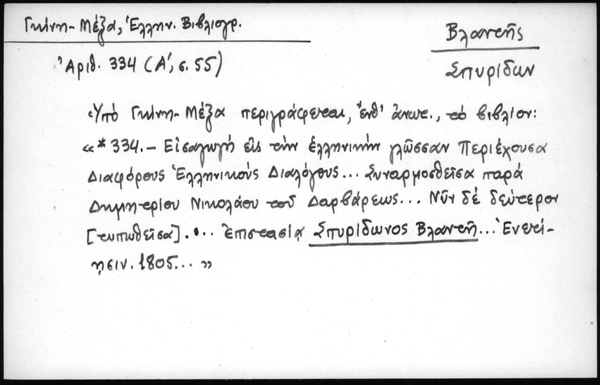 Γκίνη-Μέξα, Ἑλλην. Βιβλιογρ.
Βλαντῆς
Ἀριθ. 334 (Α΄, σ. 55)
Σπυρίδων
Ὑπό Γκίνη-Μέξα περιγράφεται, ἔνθ' ἀνωτ., τό βιβλίον:
«*334.- Εἰσαγωγή εἰς τήν ἑλληνικήν γλῶσσαν Περιέχουσα
Διαφόρους Ἑλληνικούς Διαλόγους... Συναρμοσθεῖσα παρά
Δημητρίου Νικολάου τοῦ Δαρβάρεως... Νῦν δέ δεύτερον
[τυπωθεῖσα]... Ἐπιστασίᾳ Σπυρίδωνος Βλαντῆ... Ἐνετί-
ησιν. 1805... »